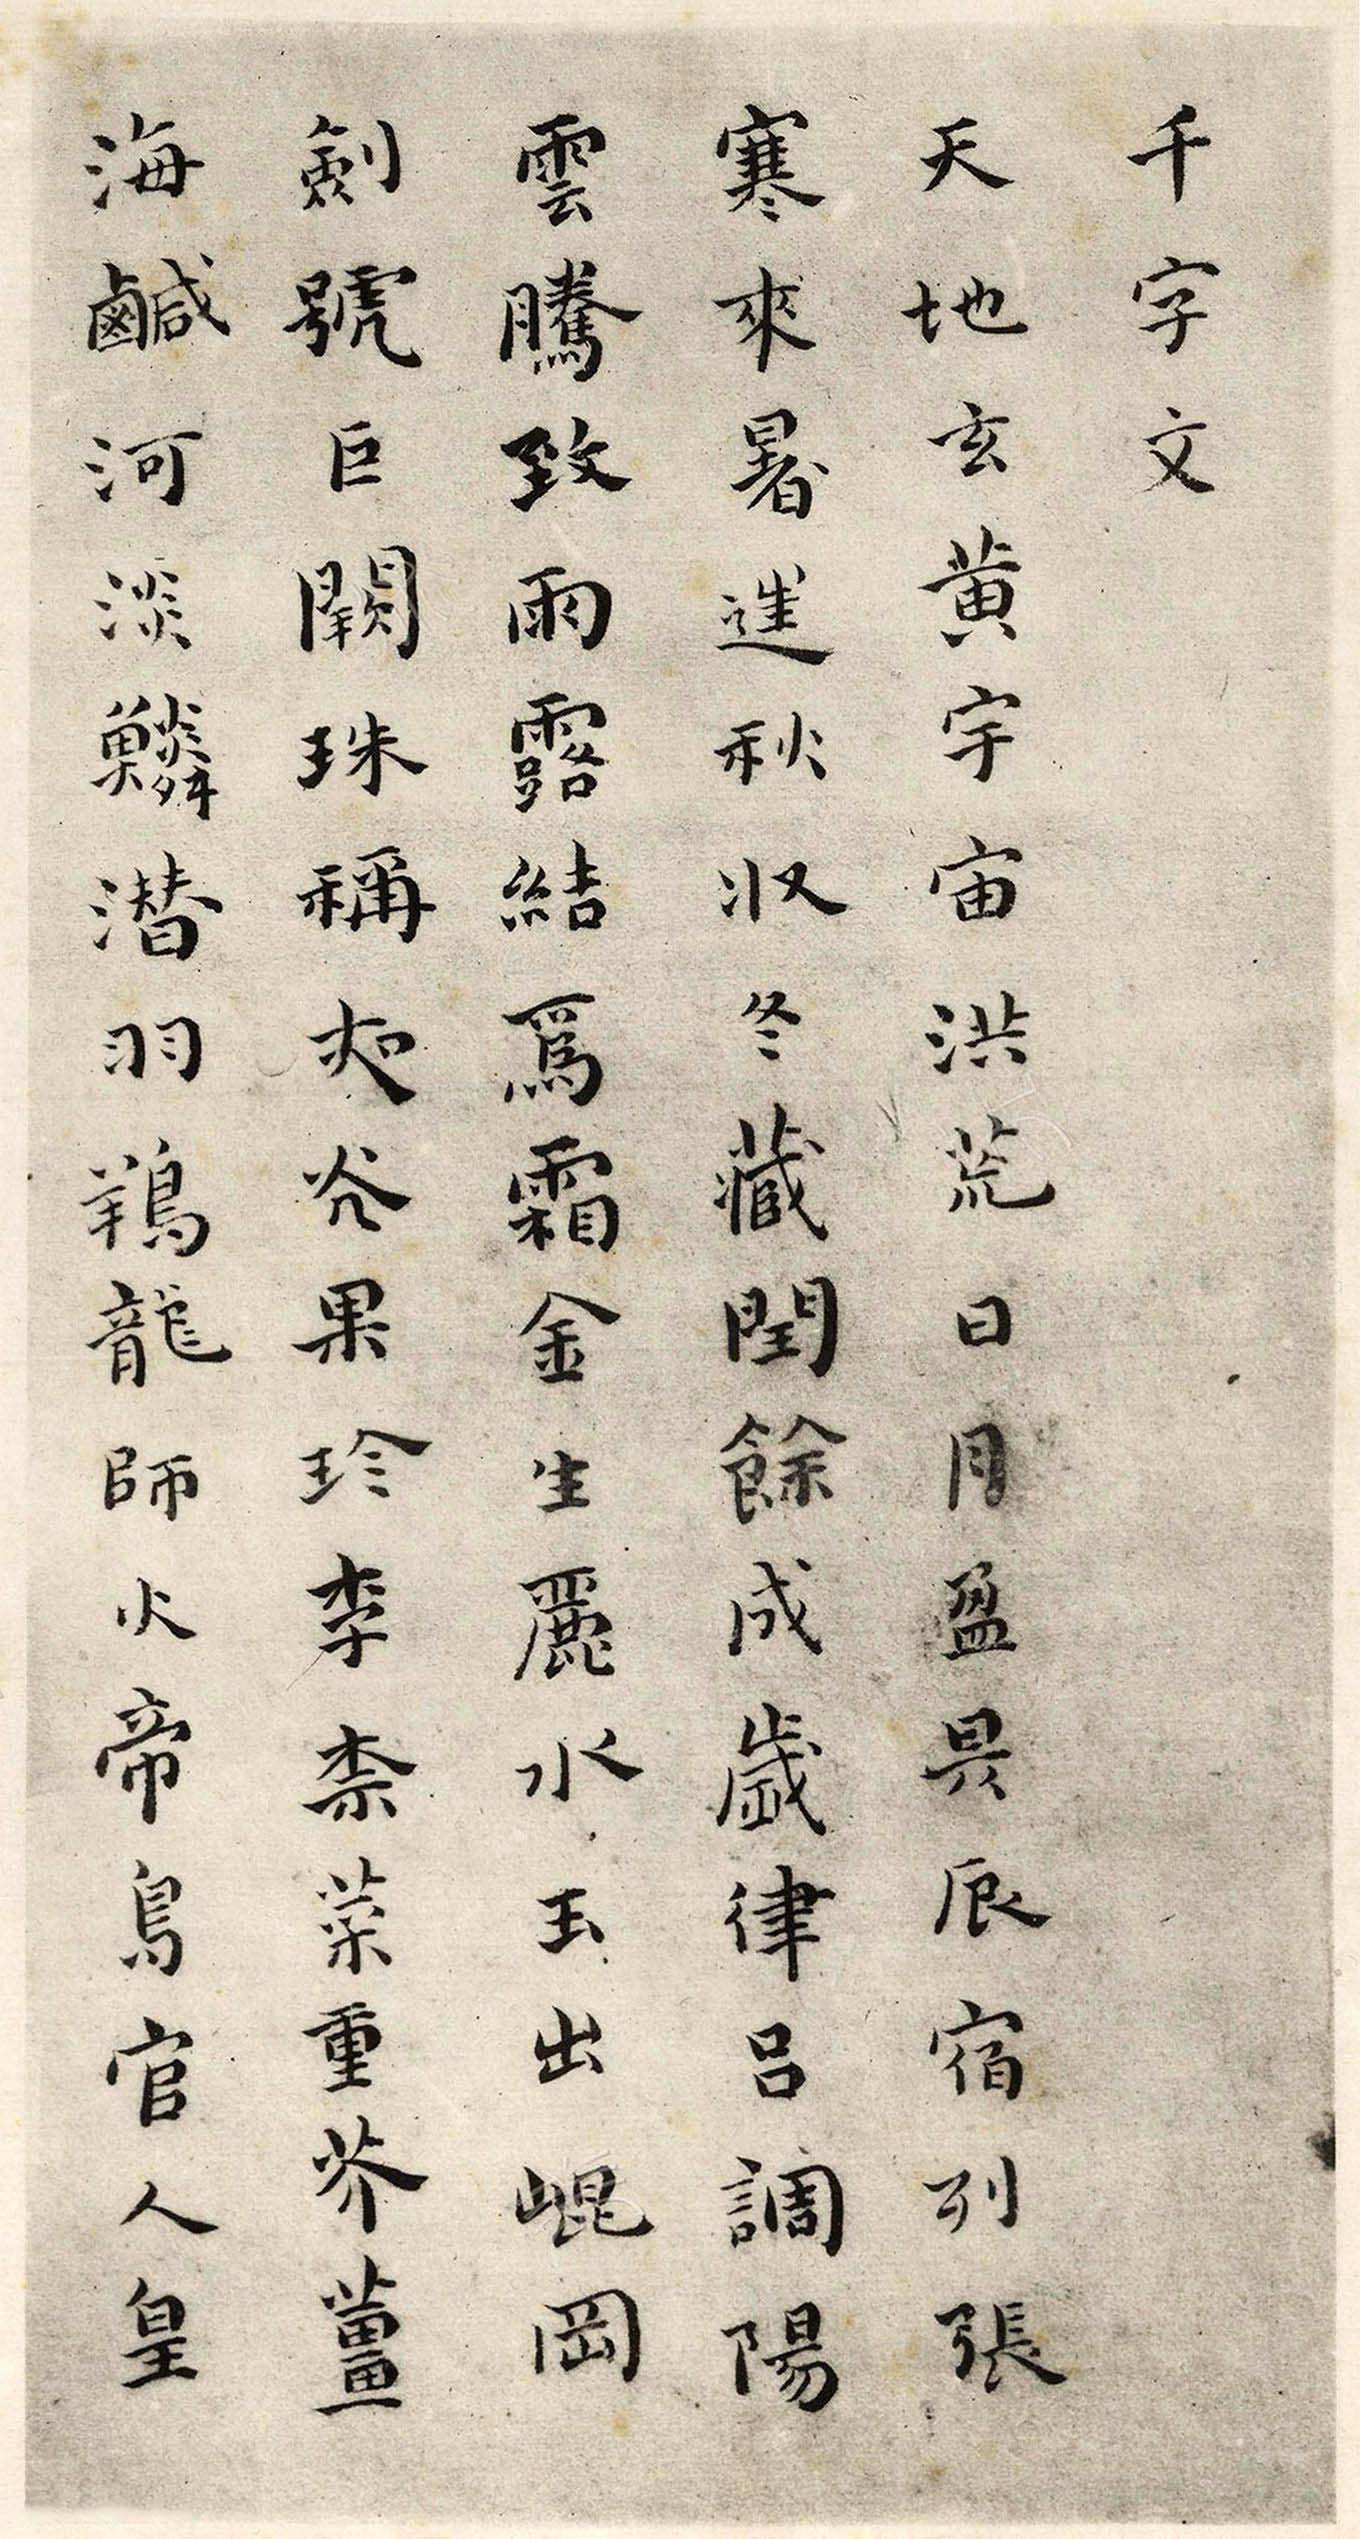 千字文
天地玄黃宇宙洪荒日月盈昃辰宿列張
寒來暑進秋収冬藏閏餘成歲律呂調陽
雲騰致雨露結爲霜金生麗水玉出崐岡
劍號巨闕珠稱夜光果珍李柰菜重芥薑
海鹹河淡鱗潜羽鴹龍師火帝鳥官人皇